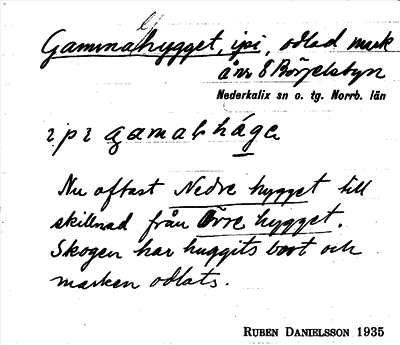 Gammalhygget, ipi, odlad mark
å nr 8 Börjelsbyn
Nederkalix sn o. tg. Norrb. län
ipi gamalhága
Nu oftast Nedre hygget till
skillnad från Övre hygget.
Skogen har huggits bort och
marken odlats.
RUBEN DANIELSSON 1935